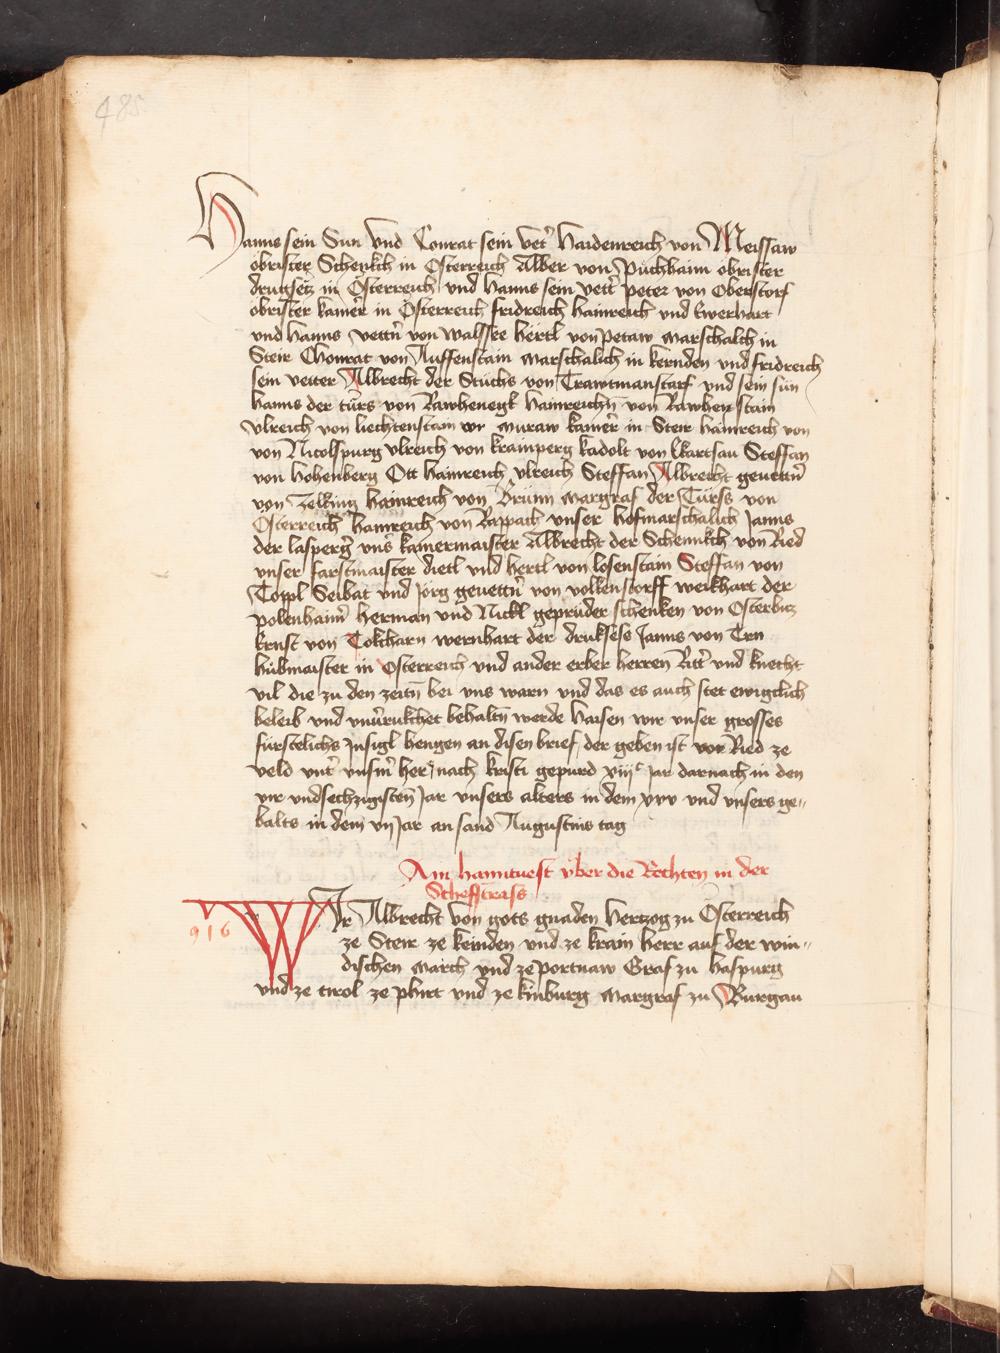 485
Hanns sein Sun Vnd Conrat sein vet̃ Haidenreich von Meissaw
obrister Schenkch in Osterreich Alber von Puchhaim obrister
drugsetz in Osterreich vnd Hanns sein vett̃ Peter von Oberstorf
obrister kamer̃ in Osterreich fridreich Hainreich vnd Ewerhart
vnd Hanns vettñ von Walssee Hertl von Petaw Marschalch in
Steir Chonrat von Auffenstain Marschalich in kernden vnd fridreich
sein vetter Albrecht der Stuchs von Trawtmanstarf vnd sein sun
Hanns der túrs von Rawhenegk Hainreichñ von Rawhenstain
Vlreich von liechtenstain von Muraw kamer̃ in Steir Hainreich von
von Nicolspurg vlreich von krainperg kadolt von Ekartsau Steffan
von Hohenberg Ott Hainreich vlreich Steffan Albrecht geuettñ
von Zelking Hainreich von Brunn Margraf der Túrss von
Osterreich Hainreich von Rappach vnser hofmarschalich Janns
der lasperg̃ vns̃ kamermaister Albrecht der Schennkch von Ried
vnser farstmaister dietl vnd Hertl von losenstain Steffan von
Toppl Seibat vnd Jorg geuettñ von volkenstorff weikhart der
polenhaim̃ Herman vnd Nickl geprúder schenken von Osterbitz
Ernst von Tokcharn wernhart der druksess Janns von Trn
húbmaister in Osterreich vnd ander erber herren Ritt̃ vnd knecht
vil die zu den zeitñ bei vns warn vnd das es auch stet ewigclich
beleib vnd vnúrukchet behaltñ werde Haisen wir vnser grosses
fúrstelichs Jnsigl hengen an disen brief der geben ist vor Ried ze
veld vnt̃ vnsm̃ her nach kristi gepurd xiijᶜ jar darnach in den
vir vndsechzigisteñ Jar vnsers alters in dem xxv vnd vnsers ge„
balts in dem vij Jar an sand Augustins tag
Ain hanntuest vber die Rechten in der
Scheffstrass
916
WIr Albrecht von gots gnaden Hertzog zu Osterreich
ze Steir ze keinden vnd ze krain Herr auf der win„
dischen March vnd ze Portnaw Graf zu Haspurg
vnd ze tirol ze phirt vnd ze kinburg Margraf zu Burgau